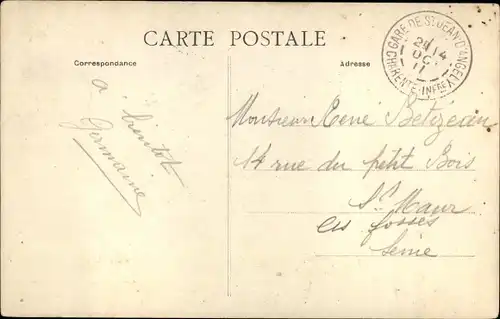 CARTE POSTALE
Correspondance
Adresse
GARE DE ST JEAN D'ANGELY
14
OC
11
CHARENTE-INFRE
à bientôt
Germaine
Monsieur René Betizeau
14 rue du petit Bois
St Maur
les fosses
Seine